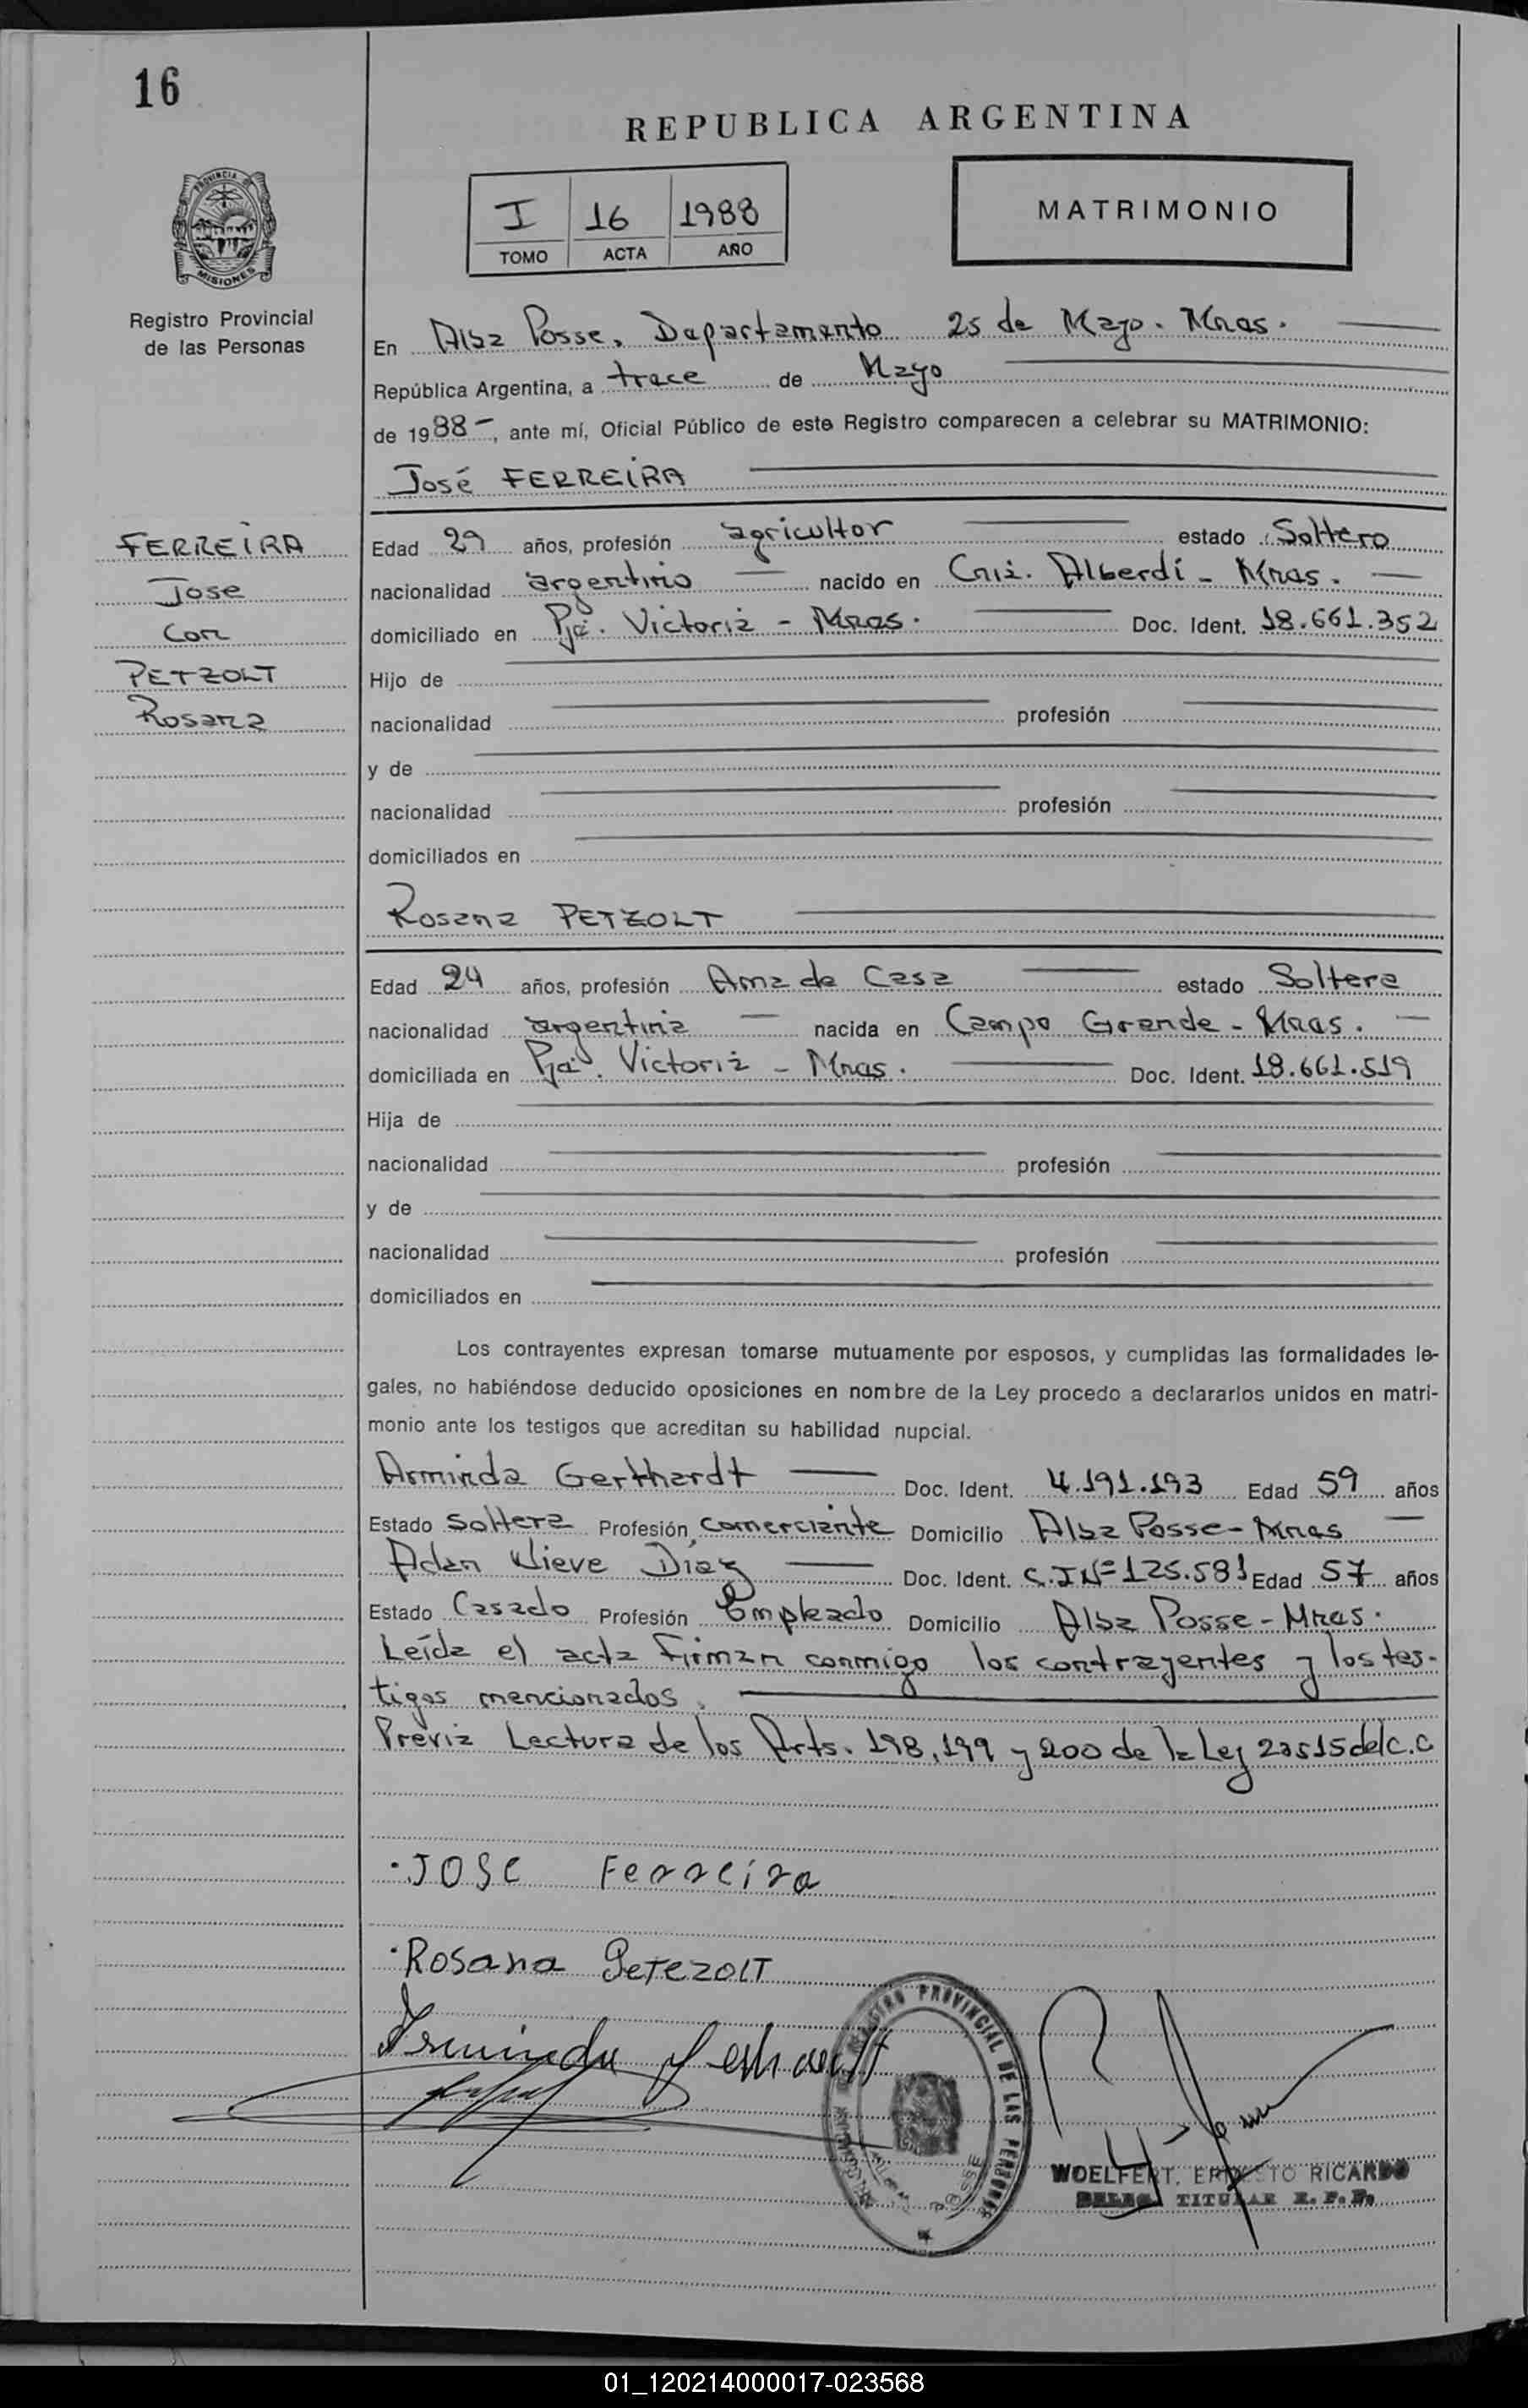 16
REPUBLICA ARGENTINA
I 16 1988
TOMO ACTA AÑO
MATRIMONIO
PROVINCIA DE
MISIONES
Registro Provincial
de las Personas
En Alba Posse, Departamento 25 de Mayo. Mnes.
República Argentina, a trece de Mayo
de 1988, ante mí, Oficial Público de este Registro comparecen a celebrar su MATRIMONIO:
José FERREIRA
FERREIRA
Jose
con
PETZOLT
Rosana
Edad 29 años, profesión agricultor estado Soltero
nacionalidad argentino nacido en Cnia. Alberdi - Mnes.
domiciliado en Pje. Victoria - Mnes. Doc. Ident. 18.661.352
Hijo de
nacionalidad profesión
y de
nacionalidad profesión
domiciliados en
Rosana PETZOLT
Edad 24 años, profesión Ama de Casa estado Soltera
nacionalidad argentina nacida en Campo Grande - Mnes.
domiciliada en Pje. Victoria - Mnes. Doc. Ident. 18.661.519
Hija de
nacionalidad profesión
y de
nacionalidad profesión
domiciliados en
Los contrayentes expresan tomarse mutuamente por esposos, y cumplidas las formalidades le-
gales, no habiéndose deducido oposiciones en nombre de la Ley procedo a declararlos unidos en matri-
monio ante los testigos que acreditan su habilidad nupcial.
Arminda Gerthardt Doc. Ident. 4.191.193 Edad 59 años
Estado Soltera Profesión comerciante Domicilio Alba Posse - Mnes
Adan Nieve Diaz Doc. Ident. C.I Nº 125.581 Edad 57 años
Estado Casado Profesión Empleado Domicilio Alba Posse - Mnes.
Leída el acta firman conmigo los contrayentes y los tes-
tigos mencionados.
Previa Lectura de los Arts. 198, 199 y 200 de la Ley 23515 del C.C
JOSE Ferreira
Rosana PetezolT
REGISTRO PROVINCIAL DE LAS PERSONAS
POSSE
WOELFERT, ERNESTO RICARDO
DELEG. TITULAR R. P. P.
01_120214000017-023568